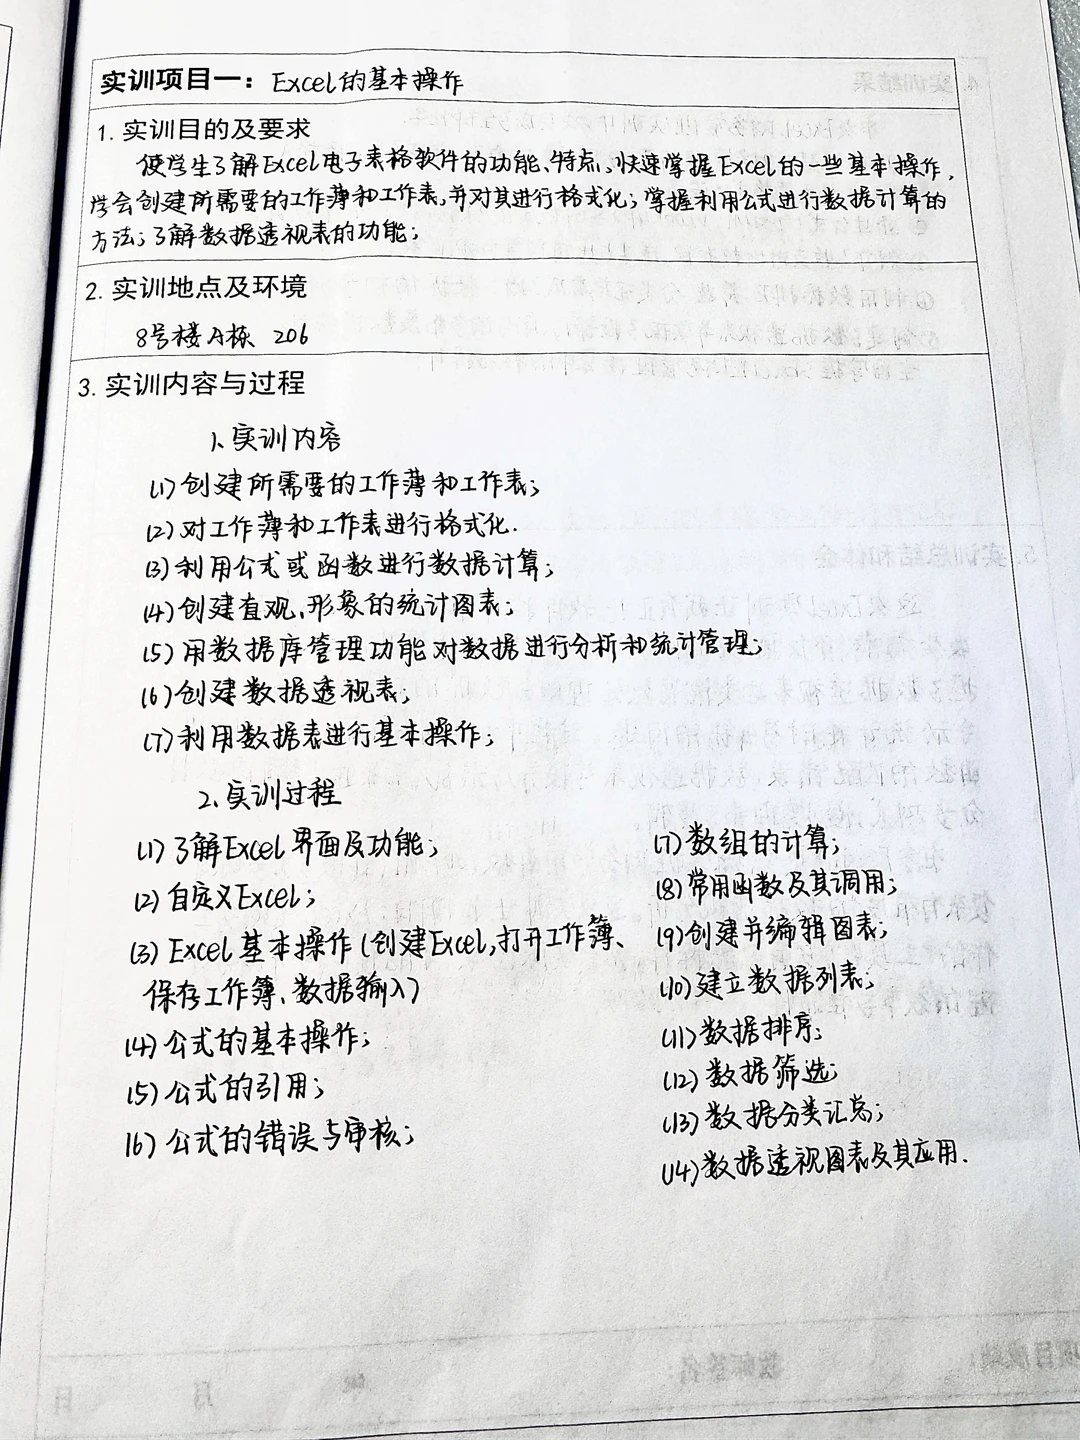 实训项目一：Excel的基本操作
1. 实训目的及要求
使学生了解Excel电子表格软件的功能、特点，快速掌握Excel的一些基本操作，
学会创建所需要的工作薄和工作表，并对其进行格式化；掌握利用公式进行数据计算的
方法；了解数据透视表的功能；
2. 实训地点及环境
8号楼A栋 206
3. 实训内容与过程
1、实训内容
(1)创建所需要的工作薄和工作表；
(2)对工作薄和工作表进行格式化.
(3)利用公式或函数进行数据计算；
(4)创建直观、形象的统计图表；
(5)用数据库管理功能对数据进行分析和统计管理；
(6)创建数据透视表；
(7)利用数据表进行基本操作；
2、实训过程
(1)了解Excel界面及功能；
(2)自定义Excel；
(3)Excel基本操作(创建Excel，打开工作簿、
保存工作簿、数据输入)
(4)公式的基本操作；
(5)公式的引用；
(6)公式的错误与审核；
(7)数组的计算；
(8)常用函数及其调用；
(9)创建并编辑图表；
(10)建立数据列表；
(11)数据排序；
(12)数据筛选；
(13)数据分类汇总；
(14)数据透视图表及其应用.